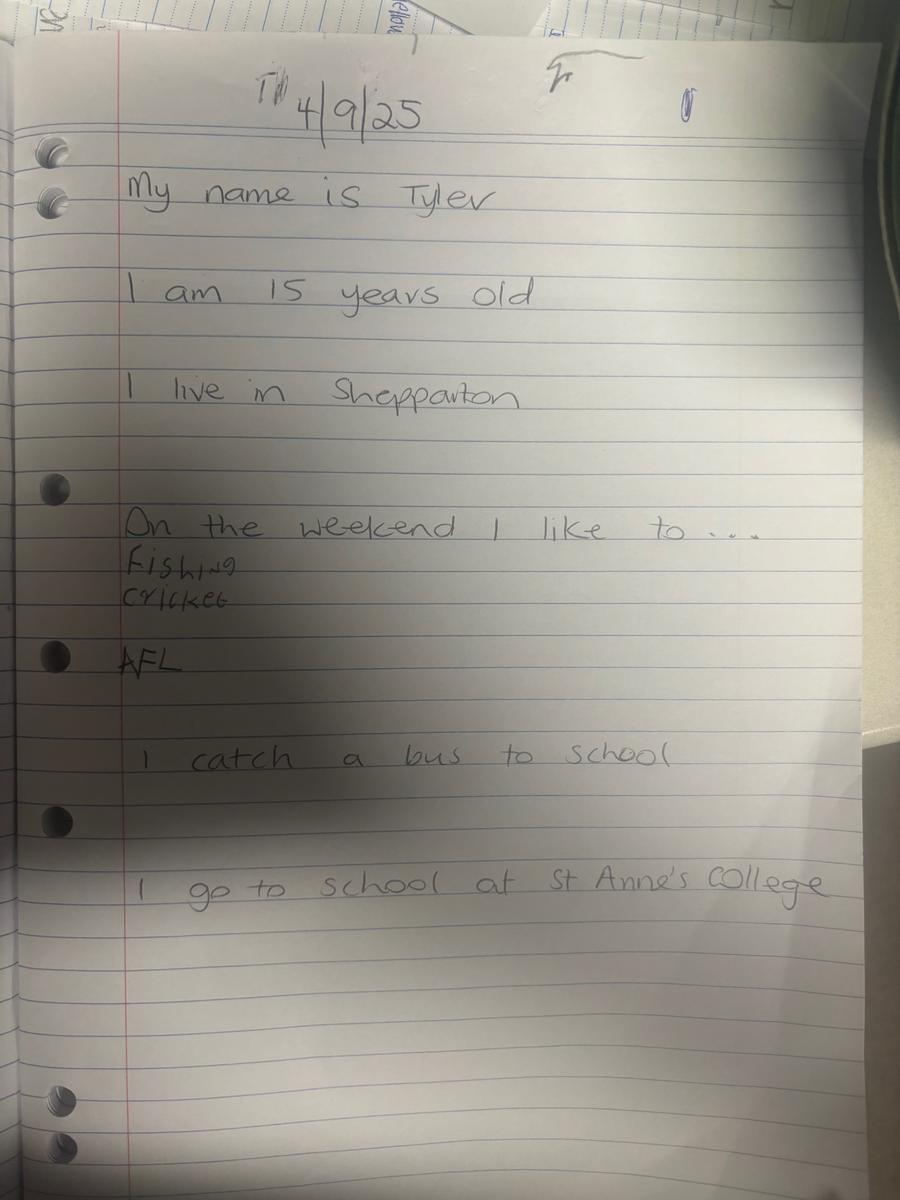 4/9/25
My name is Tyler
I am 15 years old
I live in Shepparton
On the weekend I like to ...
Fishing
cricket
AFL
I catch a bus to school
I go to school at St Anne's College